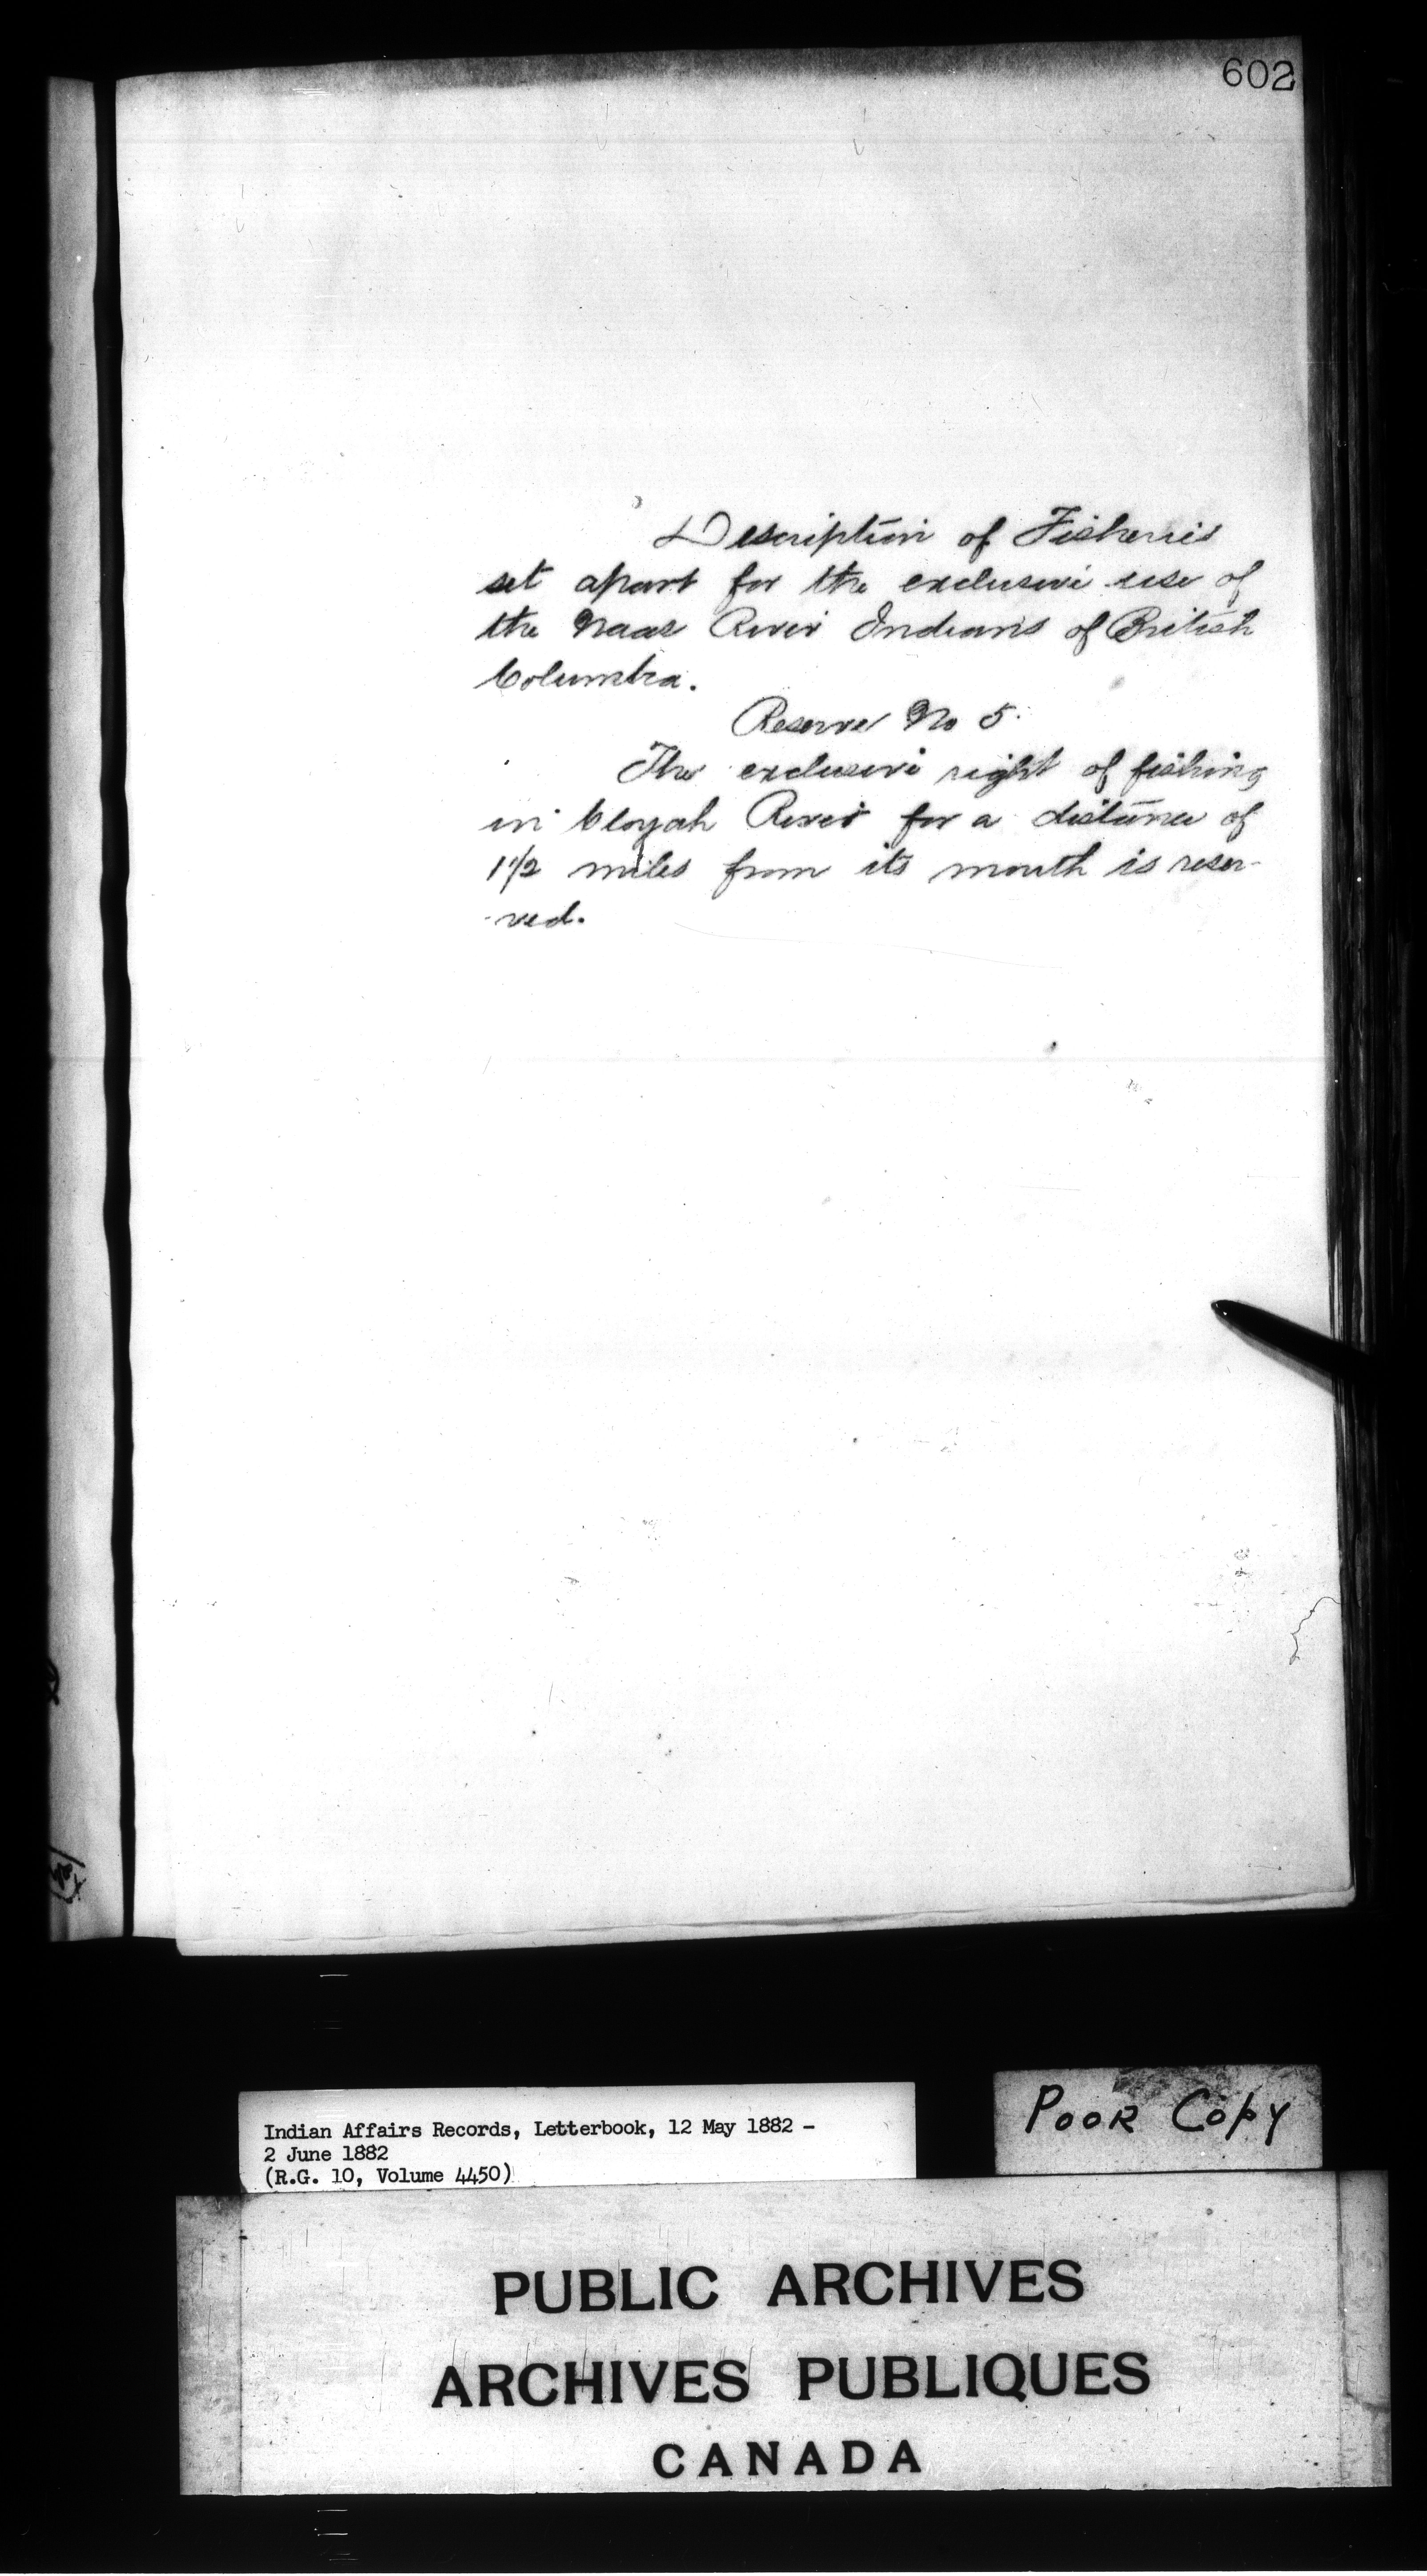 602
Description of Fisheries
set apart for the exclusive use of
the Naas River Indians of British
Columbia.
Reserve No 5.
The exclusive right of fishing
in Cloyah River for a distance of
1 1/2 miles from its mouth is reser-
-ved.
Indian Affairs Records, Letterbook, 12 May 1882 -
2 June 1882
(R.G. 10, Volume 4450)
POOR COPY
PUBLIC ARCHIVES
ARCHIVES PUBLIQUES
CANADA